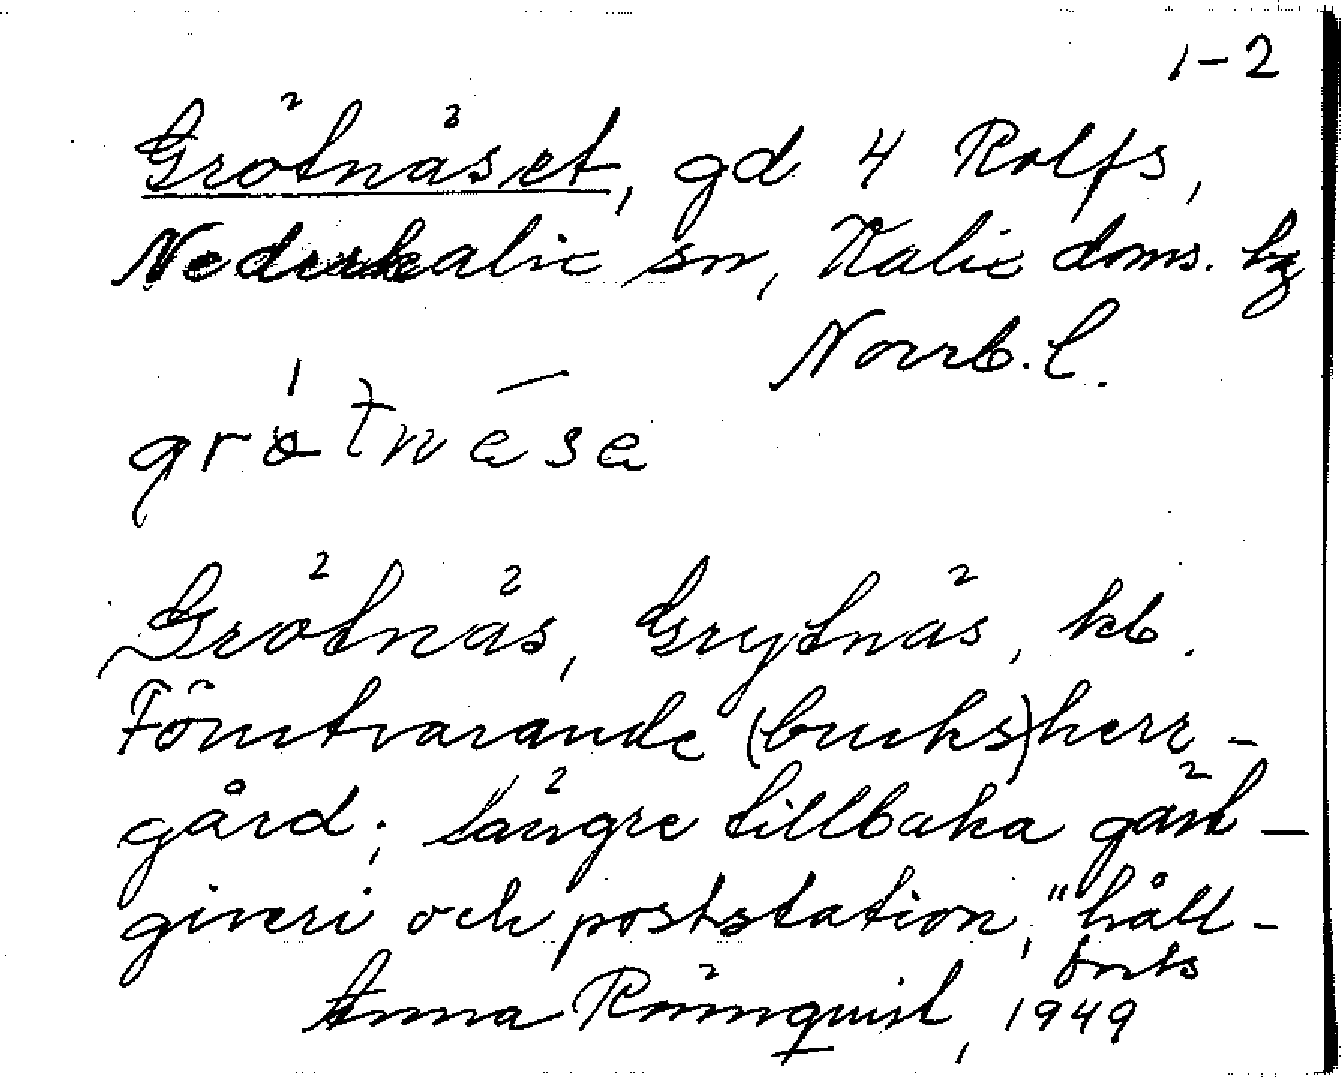 1-2
Grötnäset, gd 4 Rolfs,
Nederkalix sn, Kalix doms. hg
Norrb. l.
Grötnäs, Grytnäs, kb.
Förutvarande (bruks)herr-
gård; längre tillbaka gäst-
giveri och poststation, "håll-
forts
Anna Römquist, 1949